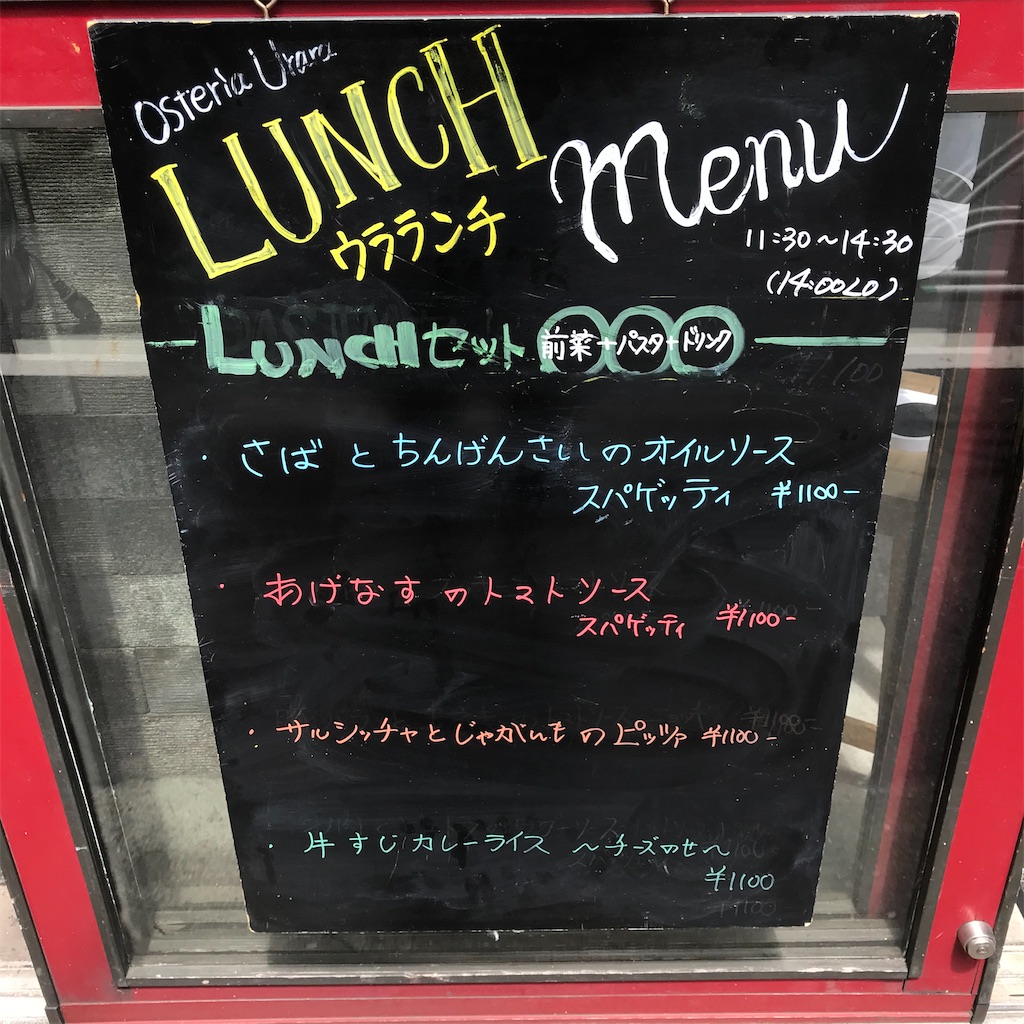 Osteria Urara
LUNCH Menu
ウラランチ
11:30～14:30
(14:00LO)
LUNCHセット 前菜+パスタ+ドリンク
・さばとちんげんさいのオイルソース
スパゲッティ ¥1100-
・あげなすのトマトソース
スパゲッティ ¥1100-
・サルシッチャとじゃがいものピッツァ ¥1100-
・牛すじカレーライス ～チーズのせ～
¥1100